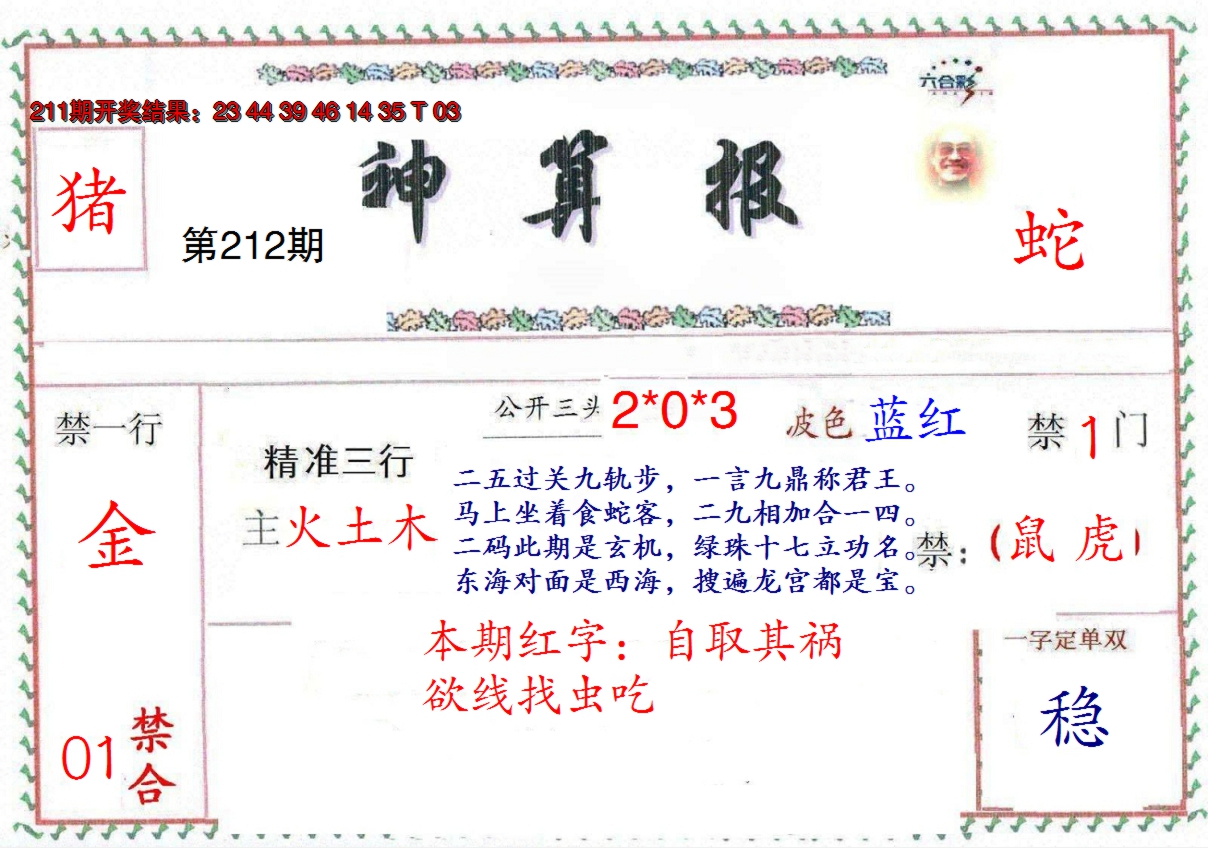 六合彩
211期开奖结果：23 44 39 46 14 35 T 03
神算报
猪
第212期
蛇
禁一行
金
01禁合
精准三行
主火土木
公开三头 2*0*3
波色 蓝红
禁1门
二五过关九轨步，一言九鼎称君王。
马上坐着食蛇客，二九相加合一四。
二码此期是玄机，绿珠十七立功名。
东海对面是西海，搜遍龙宫都是宝。
禁：（鼠 虎）
本期红字：自取其祸
欲线找虫吃
一字定单双
稳